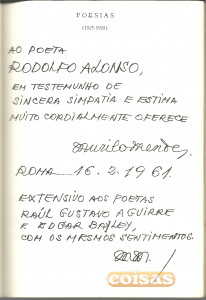 POESIAS
(1925-1955)
AO POETA
RODOLFO ALONSO,
EM TESTEMUNHO DE
SINCERA SIMPATIA E ESTIMA
MUITO CORDIALMENTE OFERECE
Murilo Mendes
ROMA 16.2.1961.
EXTENSIVO AOS POETAS
RAÚL GUSTAVO AGUIRRE
E EDGAR BAYLEY,
COM OS MESMOS SENTIMENTOS.
M.M.
coisas